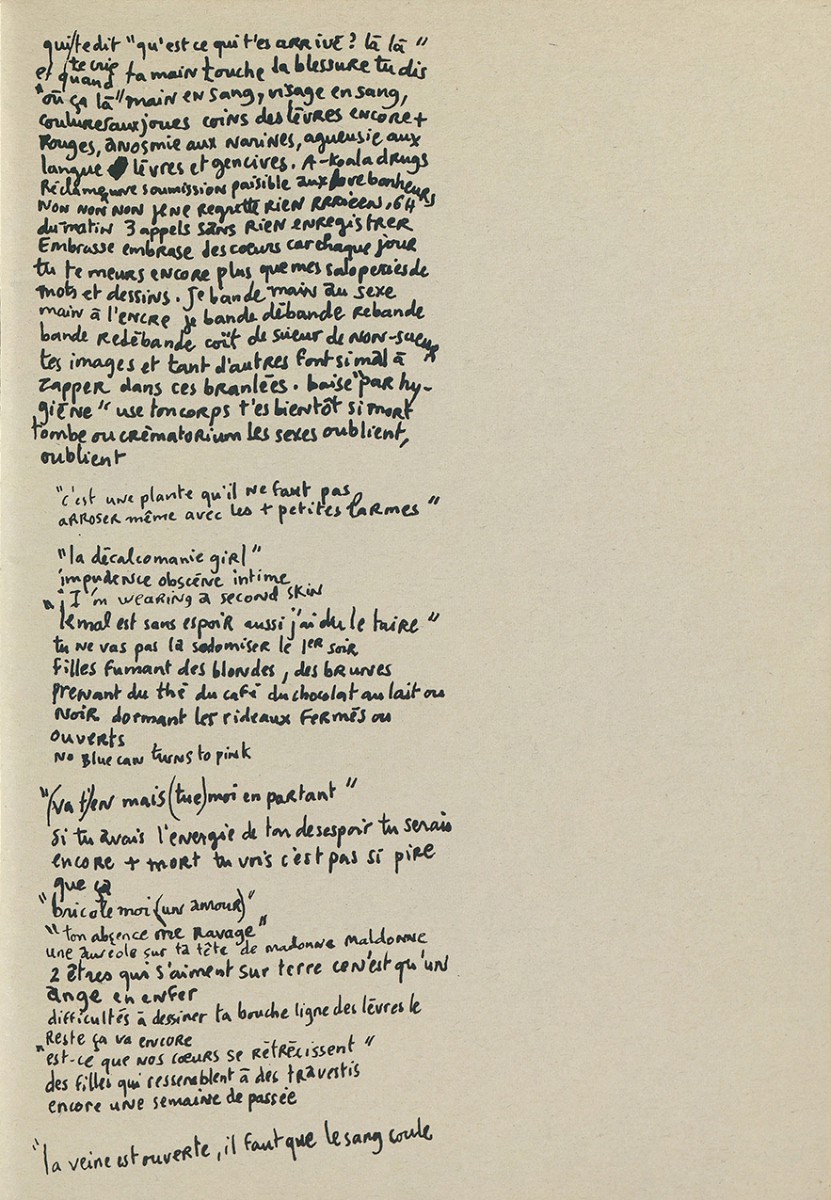 qui te dit "qu'est ce qui t'es arrivé ? là là"
te crie
et quand ta main touche la blessure tu dis
"où ça là" main en sang, visage en sang,
coutures aux joues coins des lèvres encore +
Rouges, anosmie aux narines, agueusie aux
langue lèvres et gencives. A-koala drugs
Réclame une soumission paisible aux love bonheurs
NON NON NON je ne regrette RIEN RRRIEEN, 6H
du matin 3 appels sans RIEN enregistrer
Embrasse embrase des cœurs car chaque jour
tu te meurs encore plus que mes saloperies de
mots et dessins. Je bande main au sexe
main à l'encre je bande débande rebande
bande redébande coït de sueur de NON-sueur
tes images et tant d'autres font si mal à
zapper dans ces branlées. baise "par hy-
giène" use ton corps t'es bientôt si mort
tombe ou crématorium les sexes oublient,
oublient
"c'est une plante qu'il ne faut pas
arroser même avec les + petites larmes"
"la décalcomanie girl"
impudence obscène intime
"I'm wearing a second skin
"le mal est sans espoir aussi j'ai du le taire"
tu ne vas pas la sodomiser le 1er soir
filles fumant des blondes, des brunes
prenant du thé du café du chocolat au lait ou
noir dormant les rideaux fermés ou
ouverts
No Blue can turns to pink
"(va t')en mais (tue) moi en partant"
Si tu avais l'énergie de ton desespoir tu serais
encore + mort tu vois c'est pas si pire
que ça
"bricole moi (un amour)"
"ton absence me ravage"
une auréole sur ta tête de madonne maldonne
2 êtres qui s'aiment sur terre ce n'est qu'un
ange en enfer
difficultés à dessiner ta bouche ligne des lèvres le
Reste ça va encore
"est-ce que nos cœurs se rétrécissent"
des filles qui ressemblent à des travestis
encore une semaine de passée
"la veine est ouverte, il faut que le sang coule